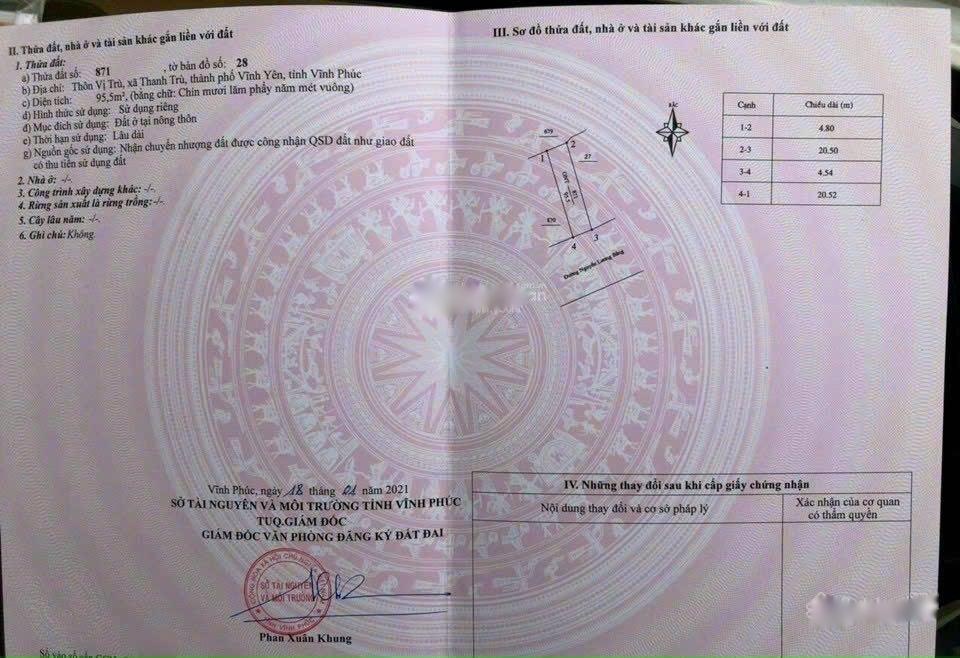 II. Thửa đất, nhà ở và tài sản khác gắn liền với đất
1. Thửa đất:
a) Thửa đất số: 871 , tờ bản đồ số: 28
b) Địa chỉ: Thôn Vị Trù, xã Thanh Trù, thành phố Vĩnh Yên, tỉnh Vĩnh Phúc
c) Diện tích: 95,5m², (bằng chữ: Chín mươi lăm phẩy năm mét vuông)
d) Hình thức sử dụng: Sử dụng riêng
đ) Mục đích sử dụng: Đất ở tại nông thôn
e) Thời hạn sử dụng: Lâu dài
g) Nguồn gốc sử dụng: Nhận chuyển nhượng đất được công nhận QSD đất như giao đất
có thu tiền sử dụng đất
2. Nhà ở: -/-
3. Công trình xây dựng khác: -/-
4. Rừng sản xuất là rừng trồng:-/-
5. Cây lâu năm: -/-
6. Ghi chú:Không.
Vĩnh Phúc, ngày 18 tháng 01 năm 2021
SỞ TÀI NGUYÊN VÀ MÔI TRƯỜNG TỈNH VĨNH PHÚC
TUQ.GIÁM ĐỐC
GIÁM ĐỐC VĂN PHÒNG ĐĂNG KÝ ĐẤT ĐAI
SỞ TÀI NGUYÊN
VÀ MÔI TRƯỜNG
TỈNH VĨNH PHÚC
Phan Xuân Khung
III. Sơ đồ thửa đất, nhà ở và tài sản khác gắn liền với đất
BẮC
879
1 2
27
ONT 871
95.5
870
4 3
Đường Nguyễn Lương Bằng
Cạnh Chiều dài (m)
1-2 4.80
2-3 20.50
3-4 4.54
4-1 20.52
IV. Những thay đổi sau khi cấp giấy chứng nhận
Nội dung thay đổi và cơ sở pháp lý
Xác nhận của cơ quan
có thẩm quyền